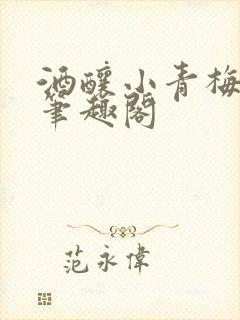 酒釀小青梅
筆趣閣
范永偉